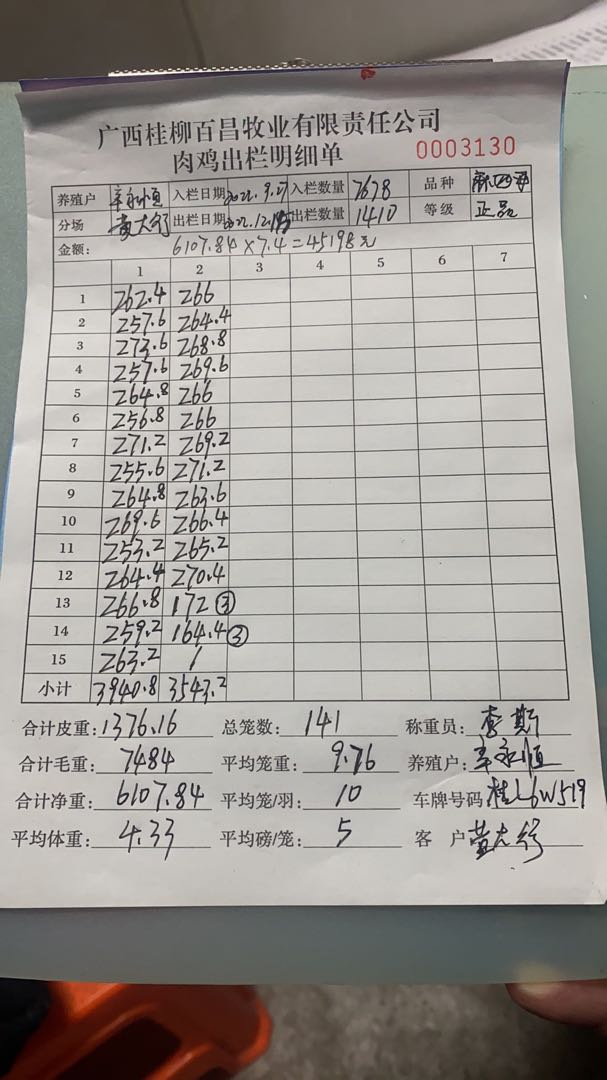 广西桂柳百昌牧业有限责任公司
肉鸡出栏明细单 0003130
养殖户 辛永恒 入栏日期 2022.9.27 入栏数量 7678 品种
分场 黄大行 出栏日期 2022.12. 出栏数量 1410 等级 正品
金额: 6107.84×7.4=45198元
1 2 3 4 5 6 7
1 262.4 266
2 257.6 264.4
3 273.6 268.8
4 257.6 269.6
5 264.8 266
6 256.8 266
7 271.2 269.2
8 255.6 271.2
9 264.8 263.6
10 269.6 266.4
11 253.2 265.2
12 264.4 270.4
13 266.8 172 ③
14 259.2 164.4 ③
15 263.2 /
小计 3940.8 3543.2
合计皮重: 1376.16 总笼数: 141 称重员: 李斯
合计毛重: 7484 平均笼重: 9.76 养殖户: 辛永恒
合计净重: 6107.84 平均笼/羽: 10 车牌号码 桂L6W519
平均体重: 4.33 平均磅/笼: 5 客户 黄大行